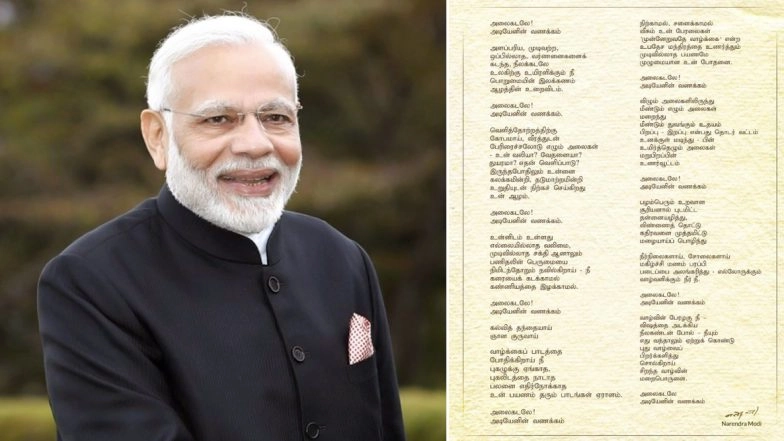 அலைகடலே!
அடியேனின் வணக்கம்
அளப்பரிய, முடிவற்ற,
ஒப்பில்லாத, வர்ணனைகளைக்
கடந்த, நீலக்கடலே
உலகிற்கு உயிரளிக்கும் நீ
பொறுமையின் இலக்கணம்
ஆழத்தின் உறைவிடம்.
அலைகடலே!
அடியேனின் வணக்கம்.
வெளித்தோற்றத்திற்கு
கோபமாய், வீரத்துடன்
பேரிரைச்சலோடு எழும் அலைகள்
- உன் வலியா? வேதனையா?
துயரமா? எதன் வெளிப்பாடு?
இருந்தபோதிலும் உன்னை
கலக்கமின்றி, தடுமாற்றமின்றி
உறுதியுடன் நிற்கச் செய்கிறது
உன் ஆழம்.
அலைகடலே!
அடியேனின் வணக்கம்.
உன்னிடம் உள்ளது
எல்லையில்லாத வலிமை,
முடிவில்லாத சக்தி ஆனாலும்
பணிதலின் பெருமையை
நிமிடந்தோறும் நவில்கிறாய் - நீ
கரையைக் கடக்காமல்
கண்ணியத்தை இழக்காமல்.
அலைகடலே!
அடியேனின் வணக்கம்
கல்வித் தந்தையாய்
ஞான குருவாய்
வாழ்க்கைப் பாடத்தை
போதிக்கிறாய் நீ
புகழுக்கு ஏங்காத,
புகலிடத்தை நாடாத
பலனை எதிர்நோக்காத
உன் பயணம் தரும் பாடங்கள் ஏராளம்.
அலைகடலே!
அடியேனின் வணக்கம்
நிற்காமல், சளைக்காமல்
வீசும் உன் பேரலைகள்
'முன்னேறுவதே வாழ்க்கை' என்ற
உபதேச மந்திரத்தை உணர்த்தும்
முடிவில்லாத பயணமே
முழுமையான உன் போதனை.
அலைகடலே!
அடியேனின் வணக்கம்
விழும் அலைகளிலிருந்து
மீண்டும் எழும் அலைகள்
மறைந்து
மீண்டும் துவங்கும் உதயம்
பிறப்பு - இறப்பு என்பது தொடர் வட்டம்
உனக்குள் மடிந்து - பின்
உயிர்த்தெழும் அலைகள்
மறுபிறப்பின்
உணர்வூட்டம்.
அலைகடலே!
அடியேனின் வணக்கம்
பழம்பெரும் உறவான
சூரியனால் புடமிட்ட
தன்னையழித்து,
விண்ணைத் தொட்டு
கதிரவனை முத்தமிட்டு
மழையாய்ப் பொழிந்து
நீர்நிலைகளாய், சோலைகளாய்
மகிழ்ச்சி மணம் பரப்பி
படைப்பை அலங்கரித்து - எல்லோருக்கும்
வாழ்வளிக்கும் நீர் நீ.
அலைகடலே!
அடியேனின் வணக்கம்
வாழ்வின் பேரழகு நீ -
விஷத்தை அடக்கிய
நீலகண்டன் போல் - நீயும்
எது வந்தாலும் ஏற்றுக் கொண்டு
புது வாழ்வைப்
பிறர்க்களித்து
சொல்கிறாய்
சிறந்த வாழ்வின்
மறைபொருளை.
அலைகடலே
அடியேனின் வணக்கம்
Narendra Modi